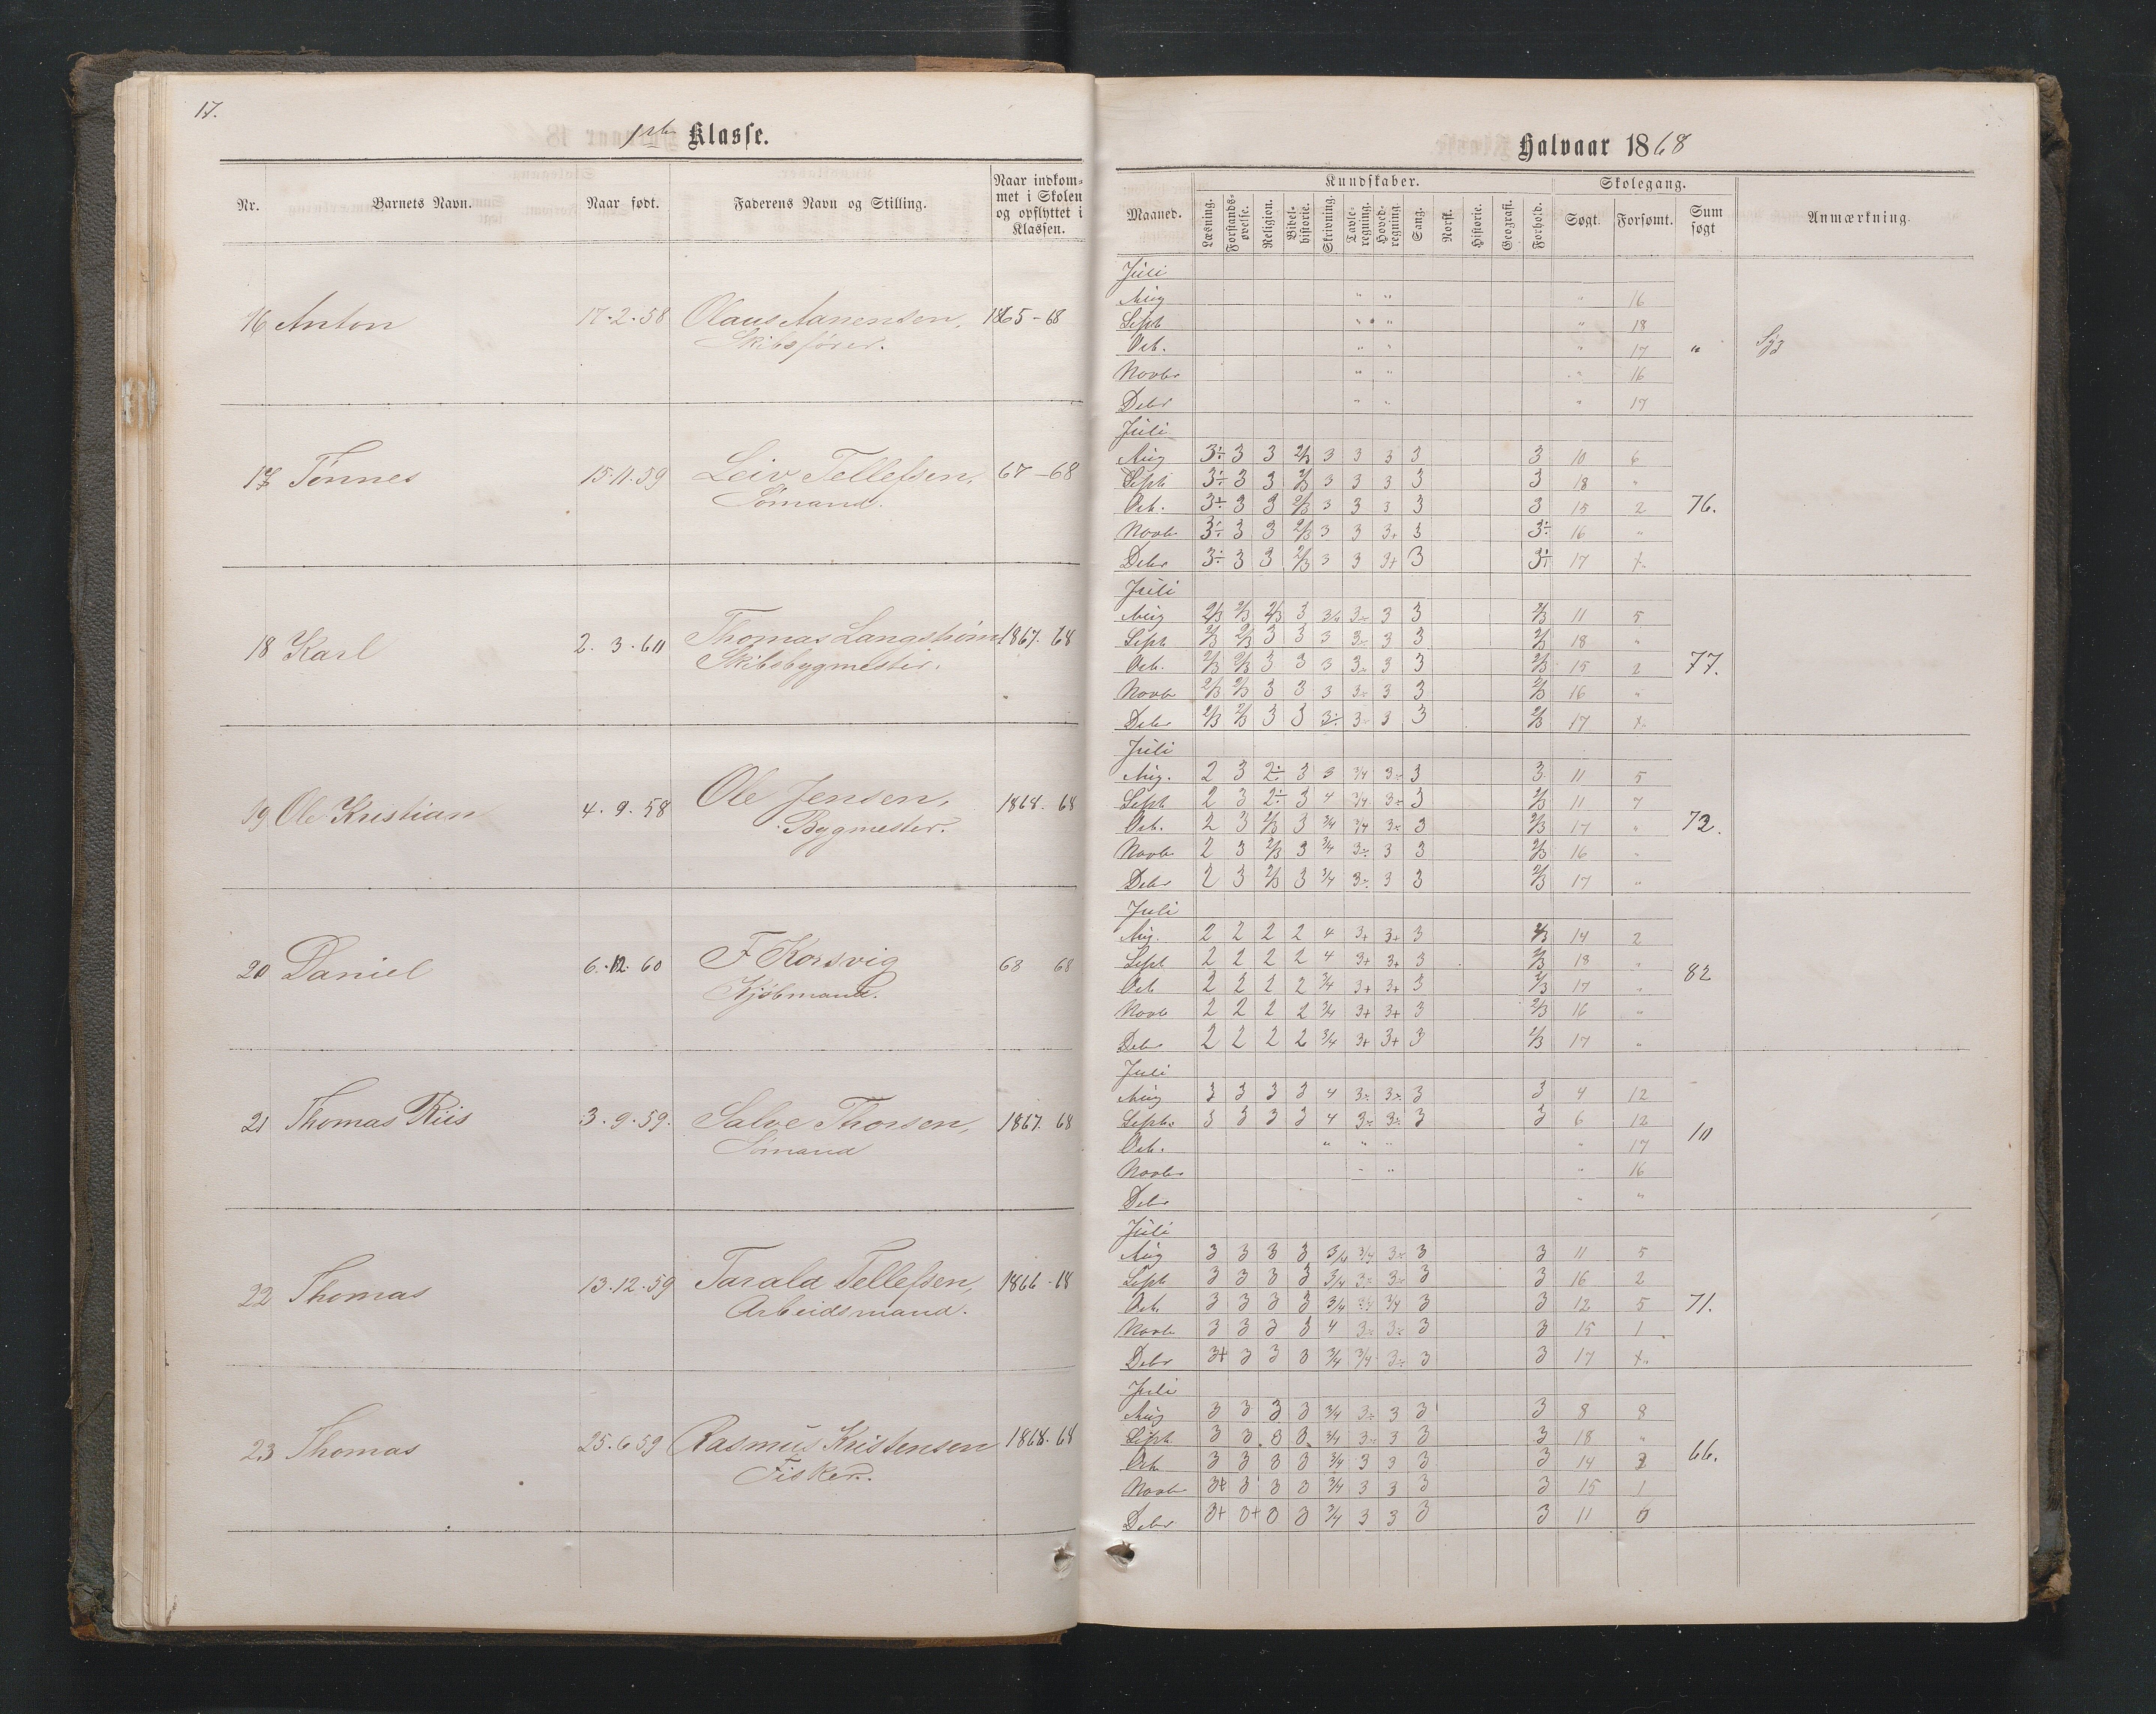 17.
1ste Klasse.
Nr. Barnets Navn. Naar født. Faderens Navn og Stilling. Naar indkommet i Skolen og opflyttet i Klassen.
16 Anton 17.2.58 Olaus Aanensen, 1865-68
Skibsfører.
17 Tønnes 15.11.59 Leiv Tellefsen, 67-68
Sømand.
18 Karl 2.3.60 Thomas Langstrøm 1867. 68
Skibsbygmester.
19 Ole Kristian 4.9.58 Ole Jensen, 1868. 68
Bygmester.
20 Daniel 6.12.60 F Korsvig 68 68
Kjøbmand.
21 Thomas Riis 3.9.59. Salve Thorsen, 1867. 68
Sømand
22 Thomas 13.12.59 Tarald Tellefsen, 1866-68
Arbeidsmand.
23 Thomas 25.6.59 Rasmus Kristensen 1868. 68
Fisker.
Halvaar 1868
Kundskaber. Skolegang.
Maaned. Læsning. Forstandsøvelse. Religion. Bibelhistorie. Skrivning. Tavleregning. Hovedregning. Sang. Norsk. Historie. Geografi. Forhold. Søgt. Forsømt. Sum søgt Anmærkning.
Juli
Aug " " " 16
Sept " " " 18
Octr. " " " 17 " Syg
Novbr " " " 16
Debr " " " 17
Juli
Aug 3÷ 3 3 2/3 3 3 3 3 3 10 6
Sept 3÷ 3 3 2/3 3 3 3 3 3 18 "
Octr. 3÷ 3 3 2/3 3 3 3 3 3 15 2 76.
Novbr 3÷ 3 3 2/3 3 3 3+ 3 3÷ 16 "
Debr 3÷ 3 3 2/3 3 3 3+ 3 3÷ 17 "
Juli
Aug 2/3 2/3 2/3 3 3/4 3÷ 3 3 2/3 11 5
Sept 2/3 2/3 3 3 3 3÷ 3 3 2/3 18 "
Octr. 2/3 2/3 3 3 3 3÷ 3 3 2/3 15 2 77.
Novbr 2/3 2/3 3 3 3 3÷ 3 3 2/3 16 "
Debr 2/3 2/3 3 3 3÷ 3÷ 3 3 2/3 17 "
Juli
Aug. 2 3 2÷ 3 3 3/4 3÷ 3 3 11 5
Sept 2 3 2÷ 3 4 3/4 3÷ 3 2/3 11 7
Octr. 2 3 2/3 3 3/4 3/4 3÷ 3 2/3 17 " 72.
Novbr 2 3 2/3 3 3/4 3÷ 3 3 2/3 16 "
Debr 2 3 2/3 3 3/4 3÷ 3 3 2/3 17 "
Juli
Aug. 2 2 2 2 4 3+ 3+ 3 2/3 14 2
Sept 2 2 2 2 4 3+ 3+ 3 2/3 18 "
Octr 2 2 2 2 3/4 3+ 3+ 3 2/3 17 " 82
Novbr 2 2 2 2 3/4 3+ 3+ 3 2/3 16 "
Debr 2 2 2 2 3/4 3+ 3+ 3 2/3 17 "
Juli
Aug 3 3 3 3 4 3÷ 3÷ 3 3 4 12
Septbr 3 3 3 3 4 3÷ 3÷ 3 3 6 12
Octr. " " " " 17 10
Novbr " " " 16
Debr " "
Juli
Aug 3 3 3 3 3/4 3/4 3÷ 3 3 11 5
Sept 3 3 3 3 3/4 3÷ 3÷ 3 3 16 2
Octr 3 3 3 3 3/4 3/4 3/4 3 3 12 5 71.
Novbr 3 3 3 3 4 3÷ 3÷ 3 3 15 1
Debr 3+ 3 3 3 3/4 3/4 3÷ 3 3 17 "
Juli
Aug 3 3 3 3 3/4 3÷ 3 3 3 8 8
Sept. 3 3 3 3 3/4 3÷ 3 3 3 18 "
Octr 3 3 3 3 3/4 3 3 3 3 14 3 66.
Novbr 3+ 3 3 3 3/4 3 3 3 3 15 1
Debr 3+ 3+ 3 3 3/4 3 3 3 3 11 6